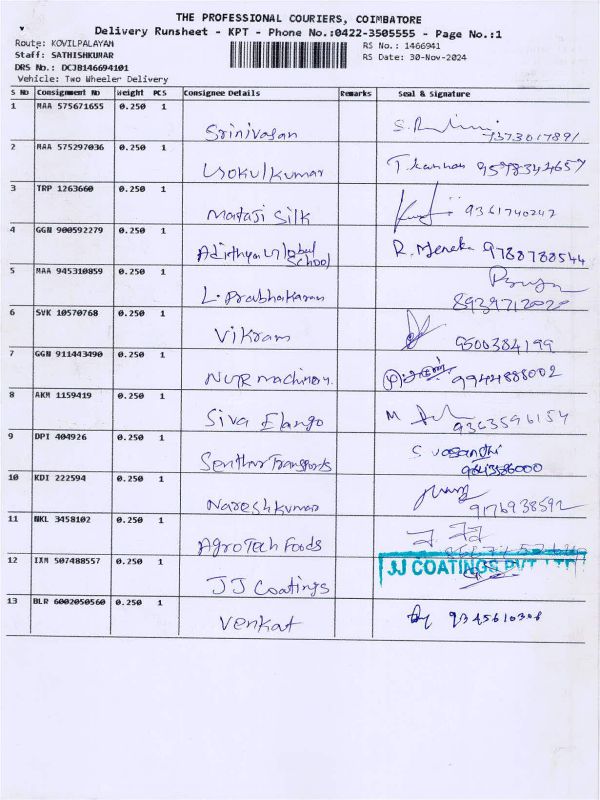 THE PROFESSIONAL COURIERS, COIMBATORE
Delivery Runsheet - KPT - Phone No.:0422-3505555 - Page No.:1
Route: KOVILPALAYAM RS No.: 1466941
Staff: SATHISHKUMAR RS Date: 30-Nov-2024
DRS No.: DCJB146694101
Vehicle: Two Wheeler Delivery
S No Consignment No Weight PCS Consignee Details Remarks Seal & Signature
1 MAA 575671655 0.250 1
Srinivasan
2 MAA 575297036 0.250 1
Gokulkumar T. kannan 9598344657
3 TRP 1263660 0.250 1
Mataji Silk 9361740247
4 GGN 900592279 0.250 1
Adithya Global School R. Meneka 9788788544
5 MAA 945310859 0.250 1
L. Prabhakaran 8939712020
6 SVK 10570768 0.250 1
Vikram 9500384199
7 GGN 911443490 0.250 1
machinery. 9944888002
8 AKM 1159419 0.250 1
Siva Elango M 9363596154
9 DPI 404926 0.250 1
Senthur Transports S vasandhi
10 KDI 222594 0.250 1
Nareshkumar 9176938592
11 NKL 3458102 0.250 1
AgroTech Foods
12 IXM 507488557 0.250 1
JJ Coatings JJ COATINGS PVT LTD
13 BLR 6002050560 0.250 1
Venkat 9345610308